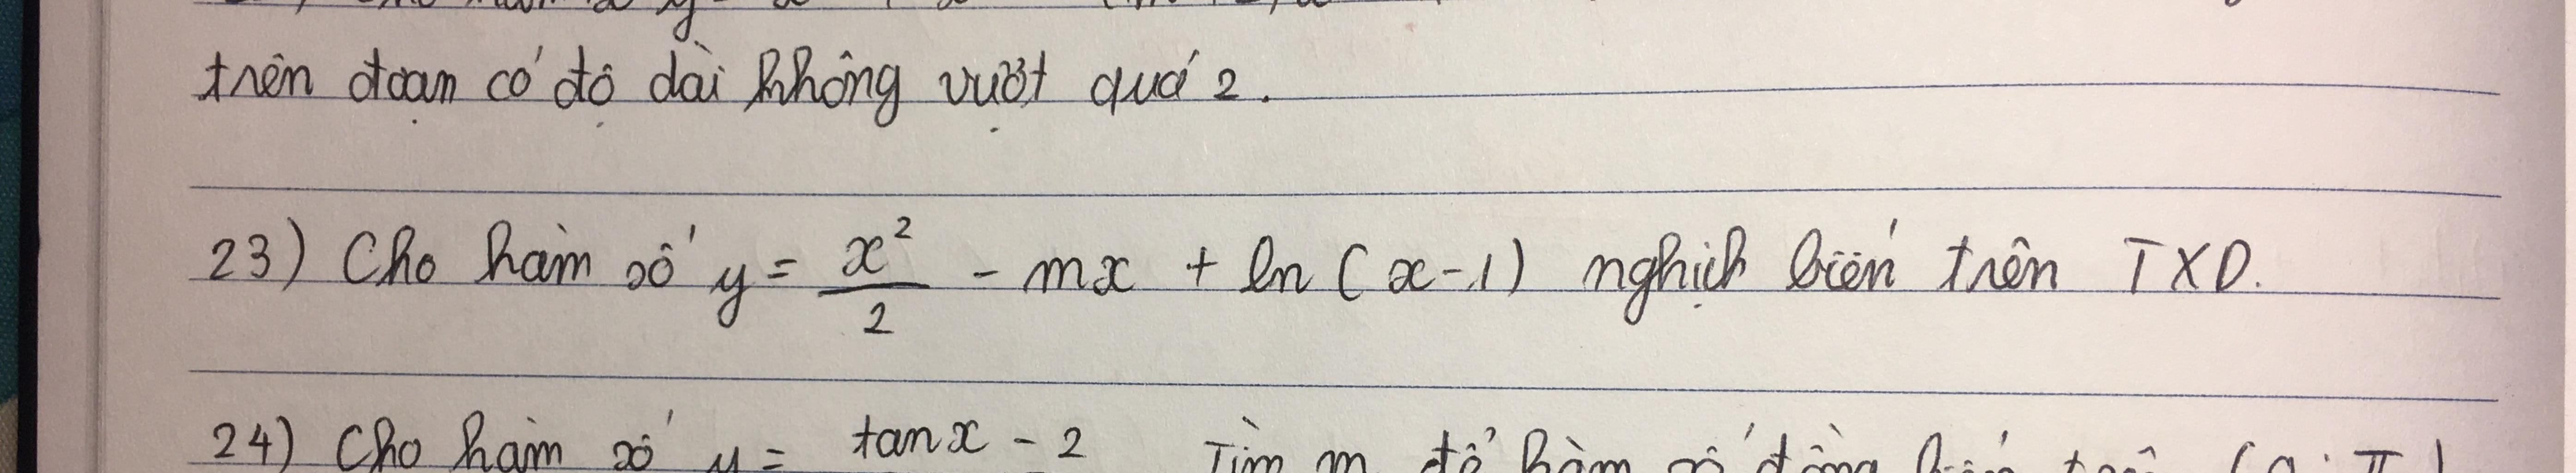 trên đoạn có độ dài không vượt quá 2.
23) Cho hàm số y = x²/2 - mx + ln (x-1) nghịch biến trên TXD.
24) Cho hàm số y = tanx - 2 Tìm m để hàm số đồng biến trên